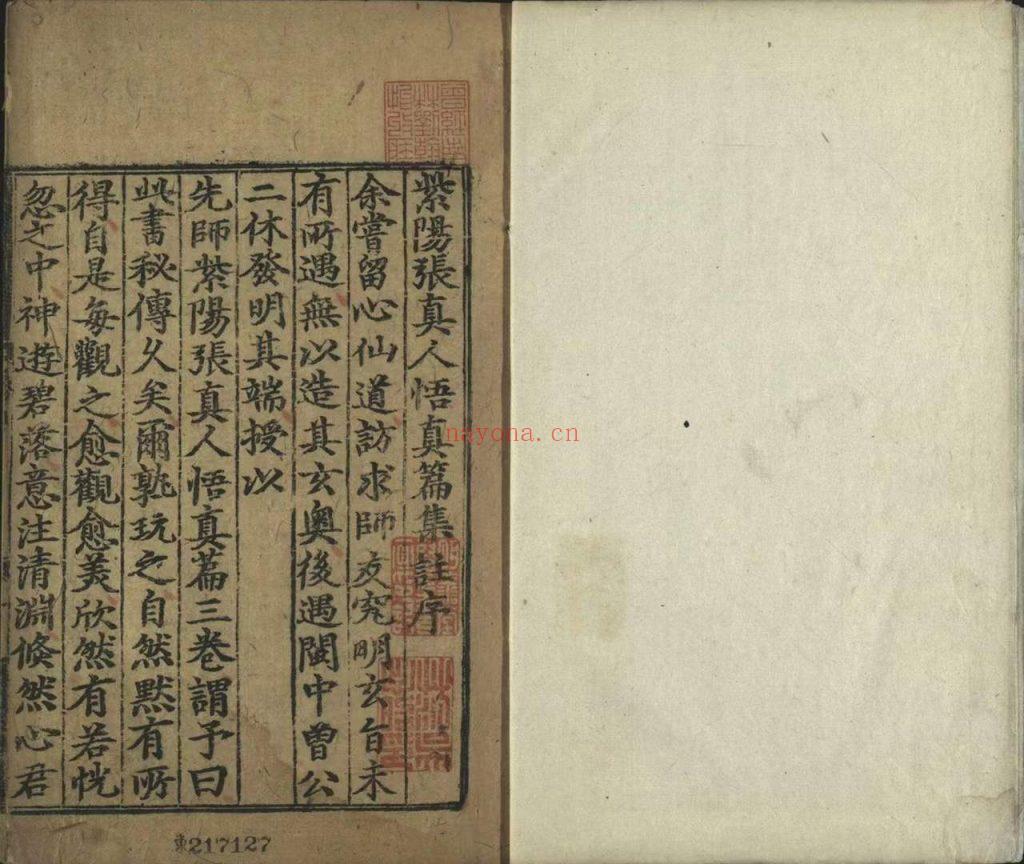 紫陽張真人悟真篇集註序
余嘗留心仙道訪求師友究明玄旨未
有所遇無以造其玄奧後遇閩中曾公
二休發明其端授以
先師紫陽張真人悟真篇三卷謂予曰
此書秘傳久矣爾孰玩之自然默有所
得自是每觀之愈觀愈美欣然有若恍
忽之中神遊碧落意注清淵倐然心君
東217127
nayona.cn